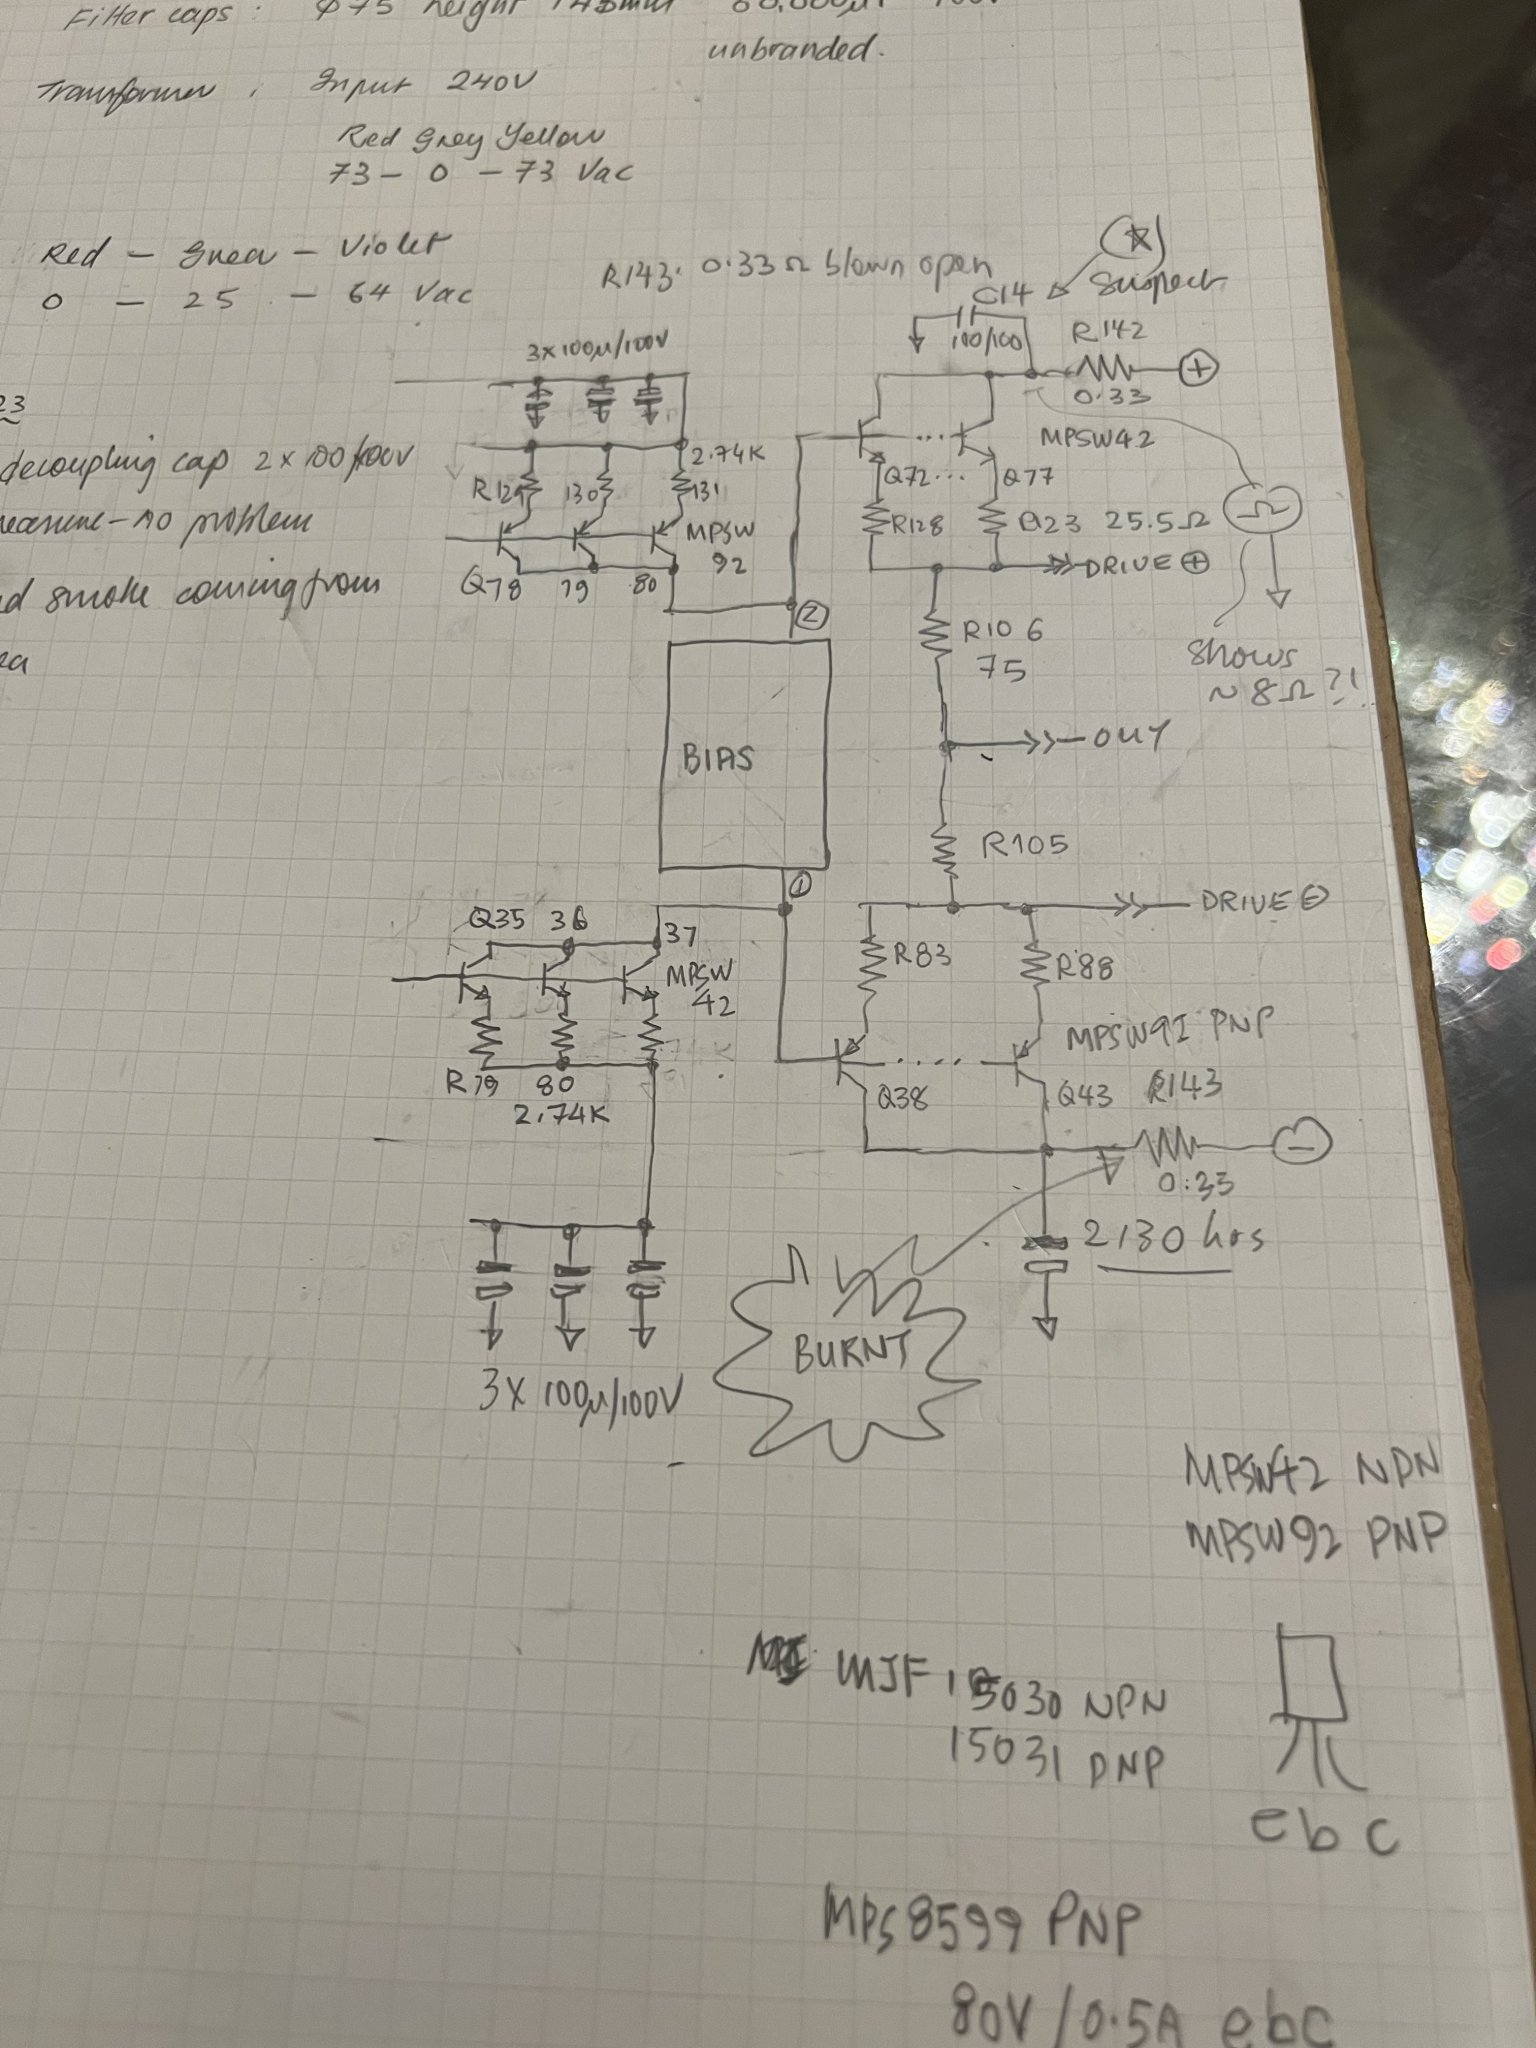 Filter caps :
unbranded.
Transformer : Input 240V
Red Grey Yellow
73 - 0 - 73 Vac
Red - Green - Violet
0 - 25 - 64 Vac
R143. 0.33Ω blown open
★
suspect
C14
100/100
R142
+
0.33
3x100μ/100V
23
decoupling cap 2x100/100V
measure - no problem
smoke coming from
2.74K
R129 130 131
MPSW
92
Q78 79 80
MPSW42
Q72... Q77
R128 R123 25.5Ω
DRIVE +
Ω
shows
~8Ω?!
2
R106
75
OUT
BIAS
R105
1
DRIVE -
Q35 36 37
MPSW
42
R83 R88
MPSW92 PNP
R79 80
2.74K
Q38 Q43 R143
-
0.33
2130 hrs
BURNT
3x 100μ/100V
MPSW42 NPN
MPSW92 PNP
MJF 15030 NPN
15031 PNP
e b c
MPS8599 PNP
80V/0.5A ebc